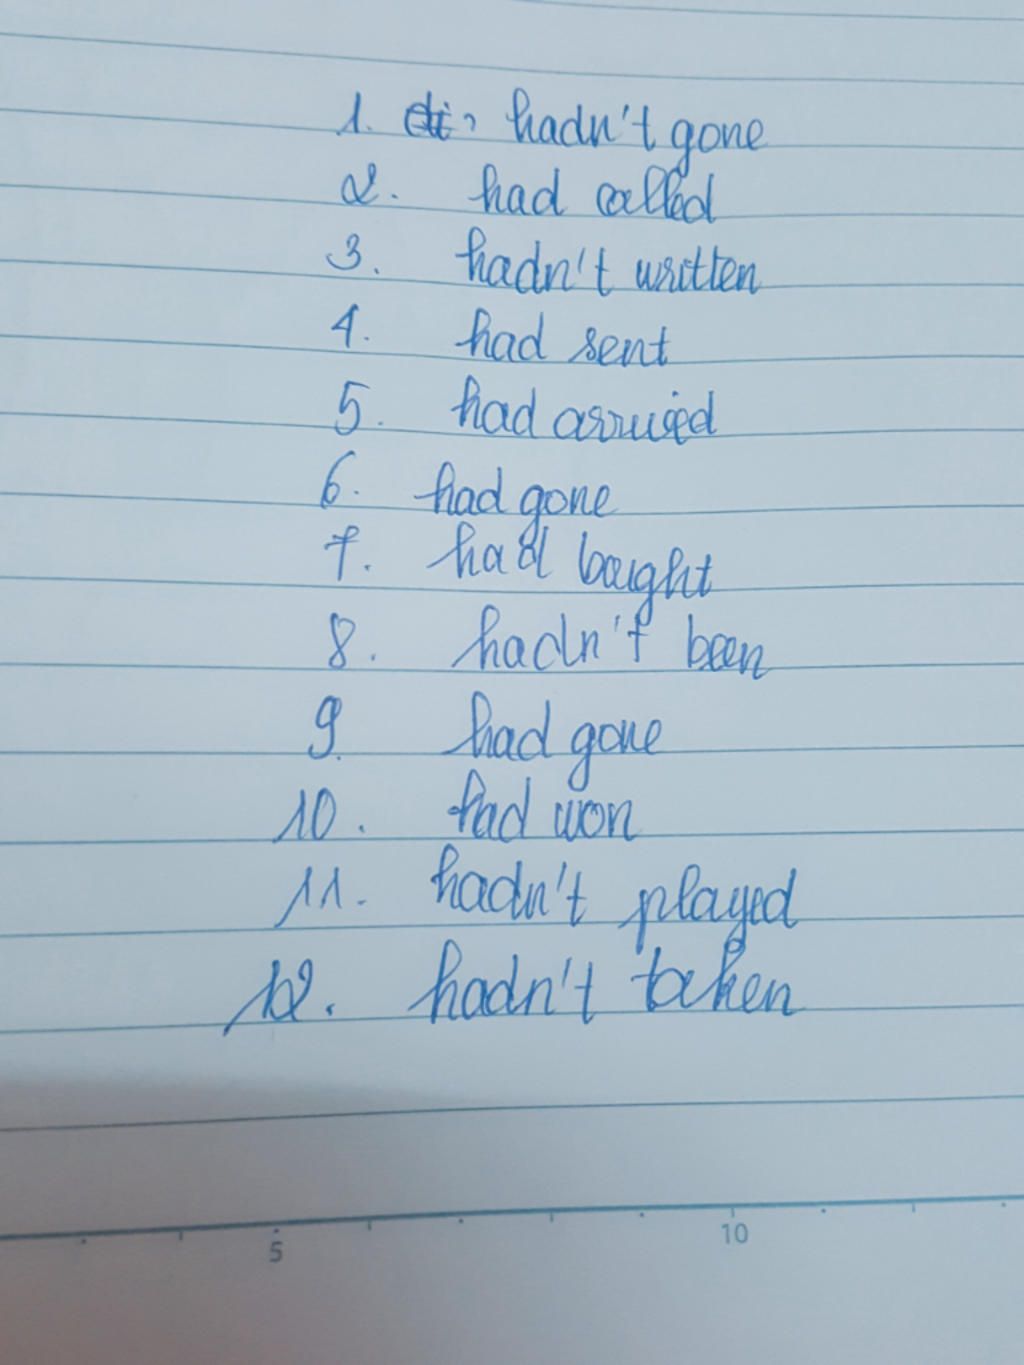 1. hadn't gone
2. had called
3. hadn't written
4. had sent
5. had arrived
6. had gone
7. had bought
8. hadn't been
9. had gone
10. had won
11. hadn't played
12. hadn't taken
5 10